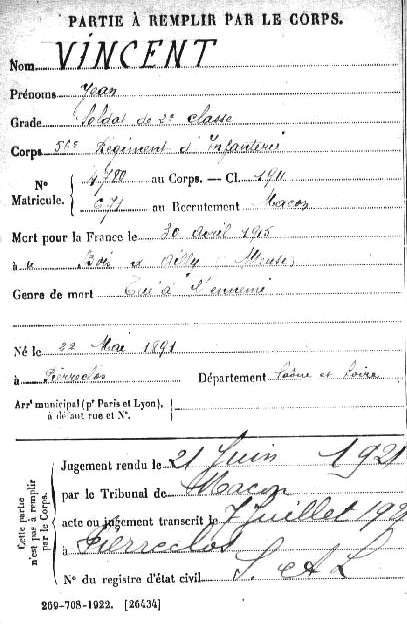 PARTIE À REMPLIR PAR LE CORPS.
Nom VINCENT
Prénoms Jean
Grade Soldat de 2e classe
Corps Régiment d'Infanterie
No Matricule. { 4780 au Corps. — Cl. 1911
671 au Recrutement Macon
Mort pour la France le 30 avril 1915
à Bois d'Ailly Meuse
Genre de mort Tué à l'ennemi
Né le 22 Mai 1891
à Pierreclos Département Saône et Loire
Arrt municipal (pr Paris et Lyon), à défaut rue et No.
Cette partie n'est pas à remplir par le Corps.
Jugement rendu le 21 Juin 1921
par le Tribunal de Macon
acte ou jugement transcrit le 7 Juillet 1921
à Pierreclos
No du registre d'état civil S. & L
269-708-1922. [26434]